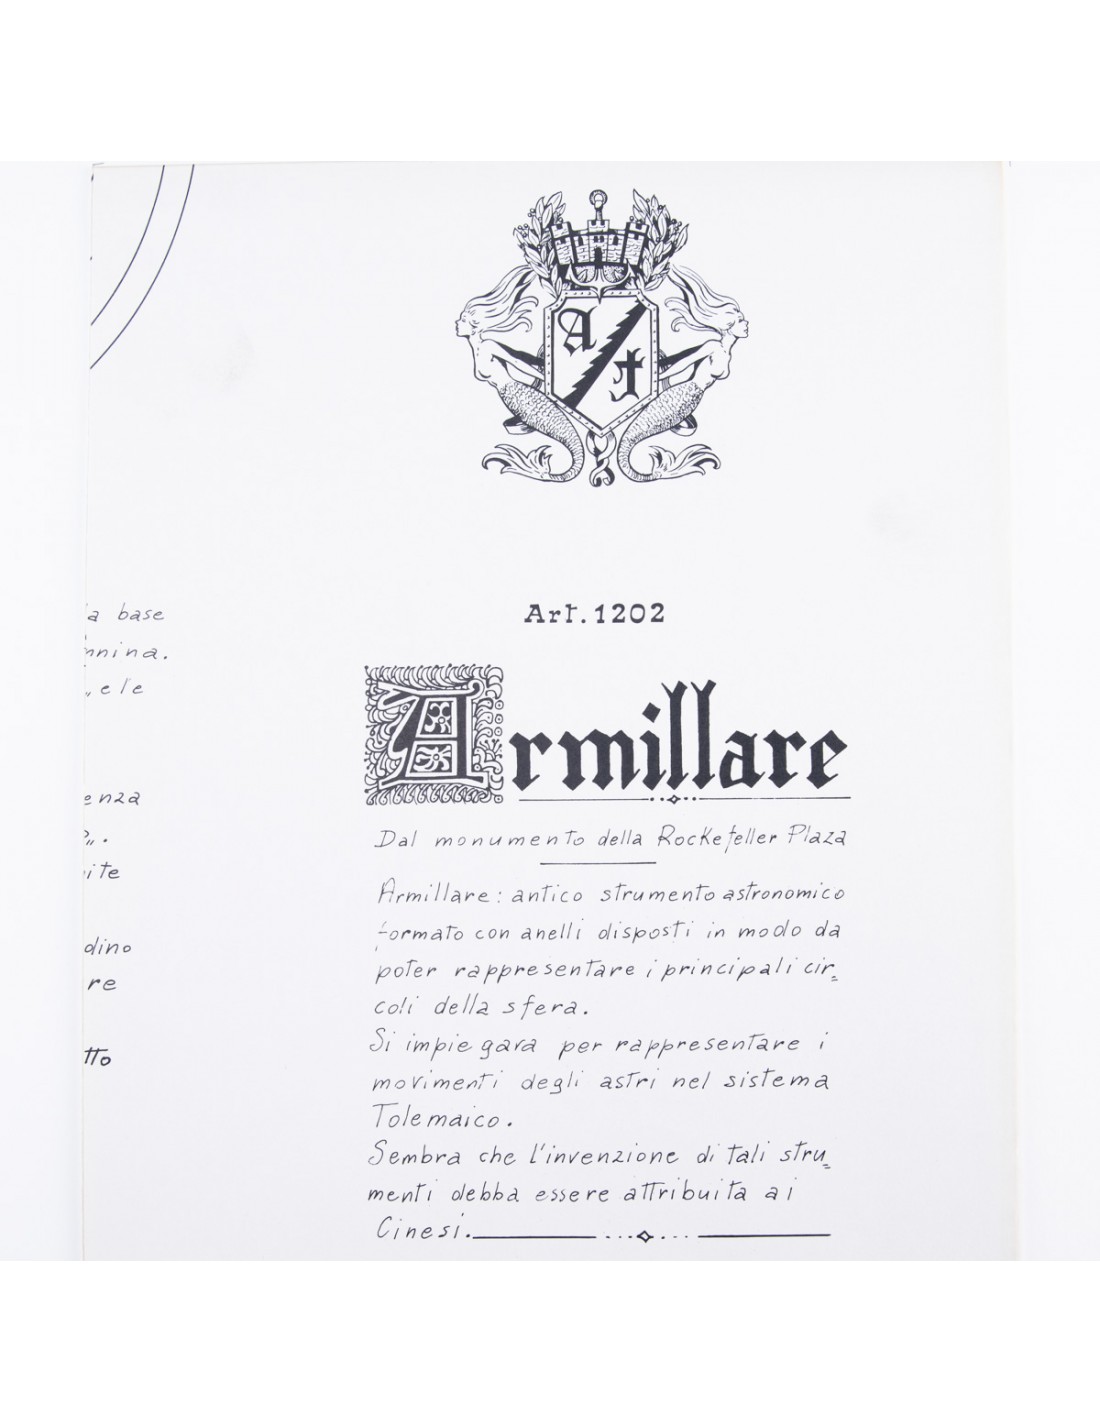 A
t
Art. 1202
Armillare
Dal monumento della Rockefeller Plaza
Armillare: antico strumento astronomico
formato con anelli disposti in modo da
poter rappresentare i principali cir=
coli della sfera.
Si impiegava per rappresentare i
movimenti degli astri nel sistema
Tolemaico.
Sembra che l'invenzione di tali stru=
menti debba essere attribuita ai
Cinesi.
base
e le